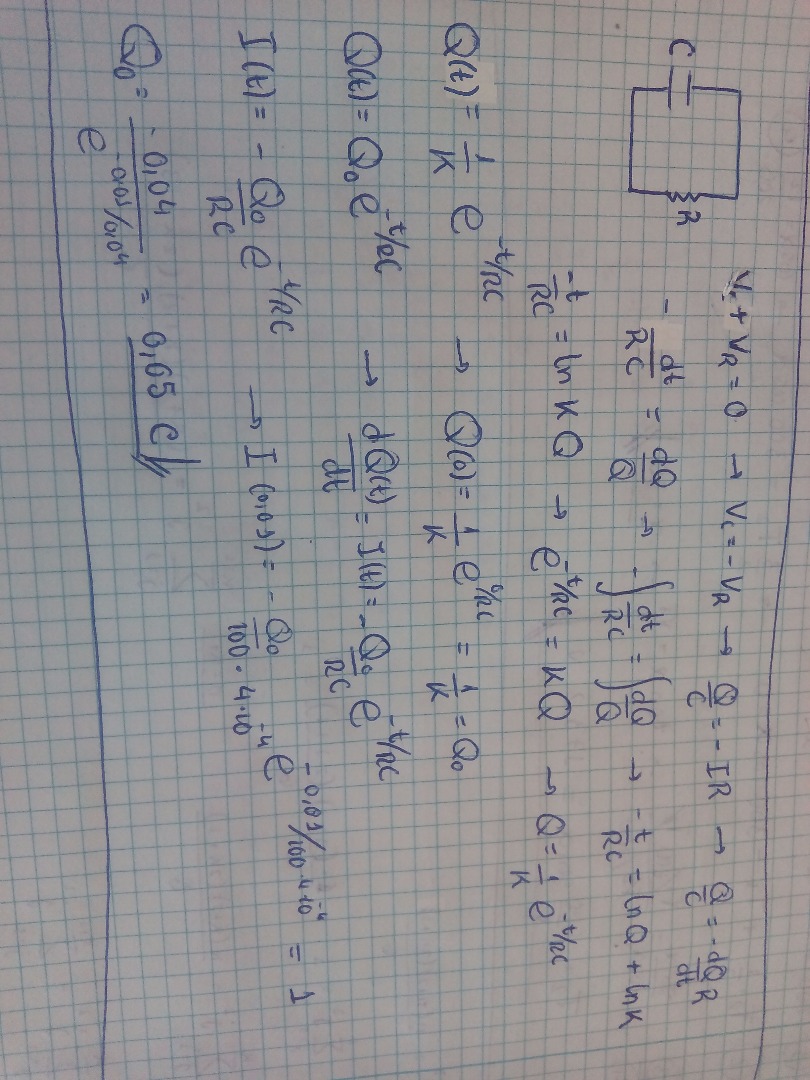 C
R
V_c + V_R = 0 → V_c = -V_R → Q/C = -IR → Q/C = -dQ/dt R
- dt/RC = dQ/Q → -∫ dt/RC = ∫ dQ/Q → -t/RC = ln Q + ln K
-t/RC = ln KQ → e^(-t/RC) = KQ → Q = 1/K e^(-t/RC)
Q(t) = 1/K e^(-t/RC) → Q(0) = 1/K e^(0/RC) = 1/K = Q_0
Q(t) = Q_0 e^(-t/RC) → dQ(t)/dt = I(t) = -Q_0/RC e^(-t/RC)
I(t) = - Q_0/RC e^(-t/RC) → I(0,01) = - Q_0/(100·4·10^-4) e^(-0,01/100·4·10^-4) = 1
Q_0 = -0,04/e^(-0,01/0,04) = 0,05 C